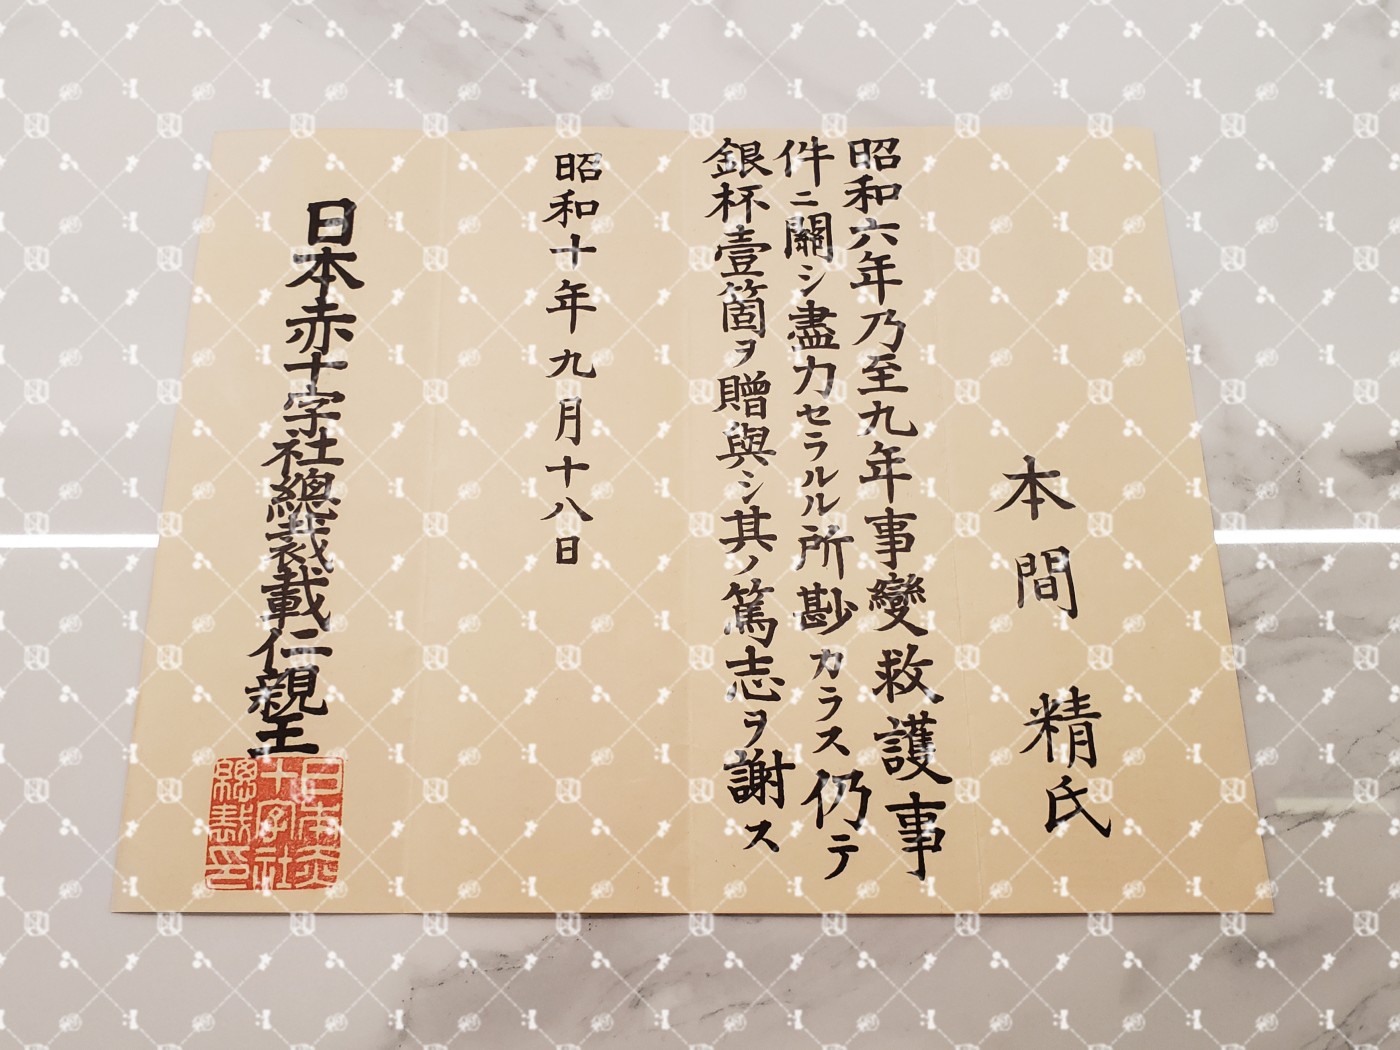 本間 精氏
昭和六年乃至九年事變救護事
件ニ關シ盡力セラルル所尠カラス仍テ
銀杯壹箇ヲ贈與シ其ノ篤志ヲ謝ス
昭和十年九月十八日
日本赤十字社總裁載仁親王
日本赤
十字社
總裁印